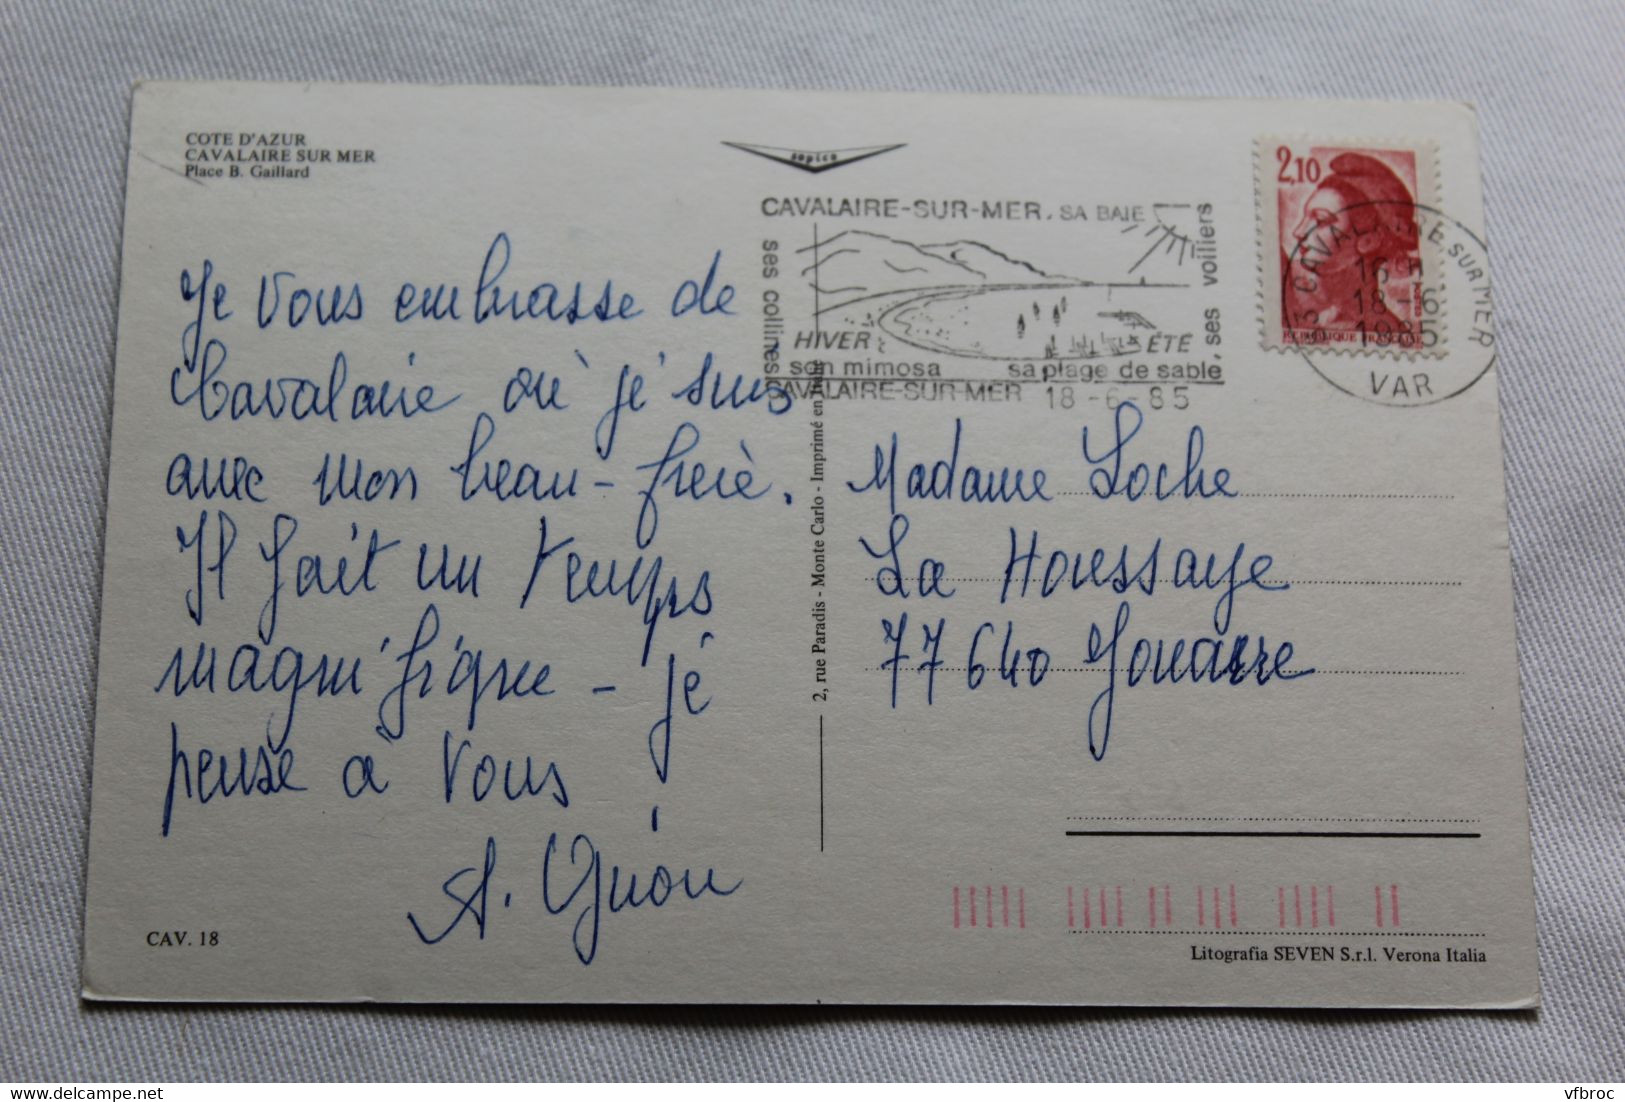 COTE D'AZUR
CAVALAIRE SUR MER
Place B. Gaillard
sopico
CAVALAIRE-SUR-MER, SA BAIE
ses collines
ses voiliers
HIVER :
son mimosa
ÉTÉ
sa plage de sable
CAVALAIRE-SUR-MER 18-6-85
2,10
RÉPUBLIQUE FRANÇAISE
CAVALAIRE SUR MER
18-6
1985
VAR
Je vous embrasse de
Cavalaire où je suis
avec mon beau-frère.
Il fait un temps
magnifique - je
pense à vous
A. Guiou
2, rue Paradis - Monte Carlo - Imprimé en Italie
Madame Loche
La Houssaye
77640 Jouarre
CAV. 18
Litografia SEVEN S.r.l. Verona Italia
vfbroc